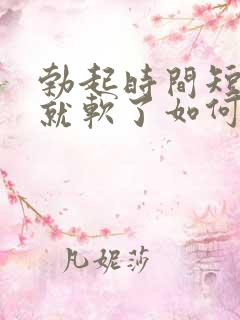 勃起時間短
就軟了如何
凡妮莎